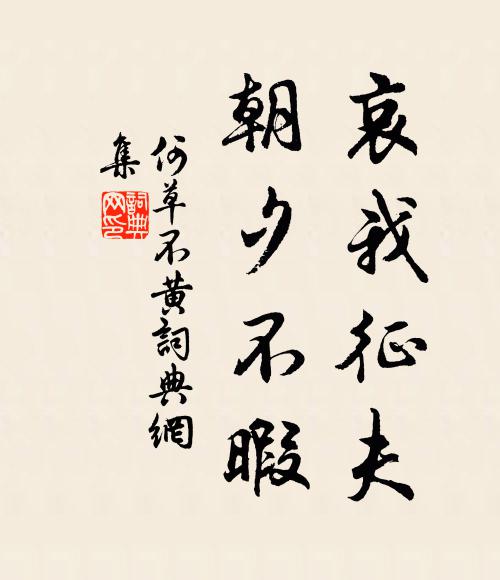 哀我征夫
朝夕不暇
何草不黄詞典網
集
詞典
网印